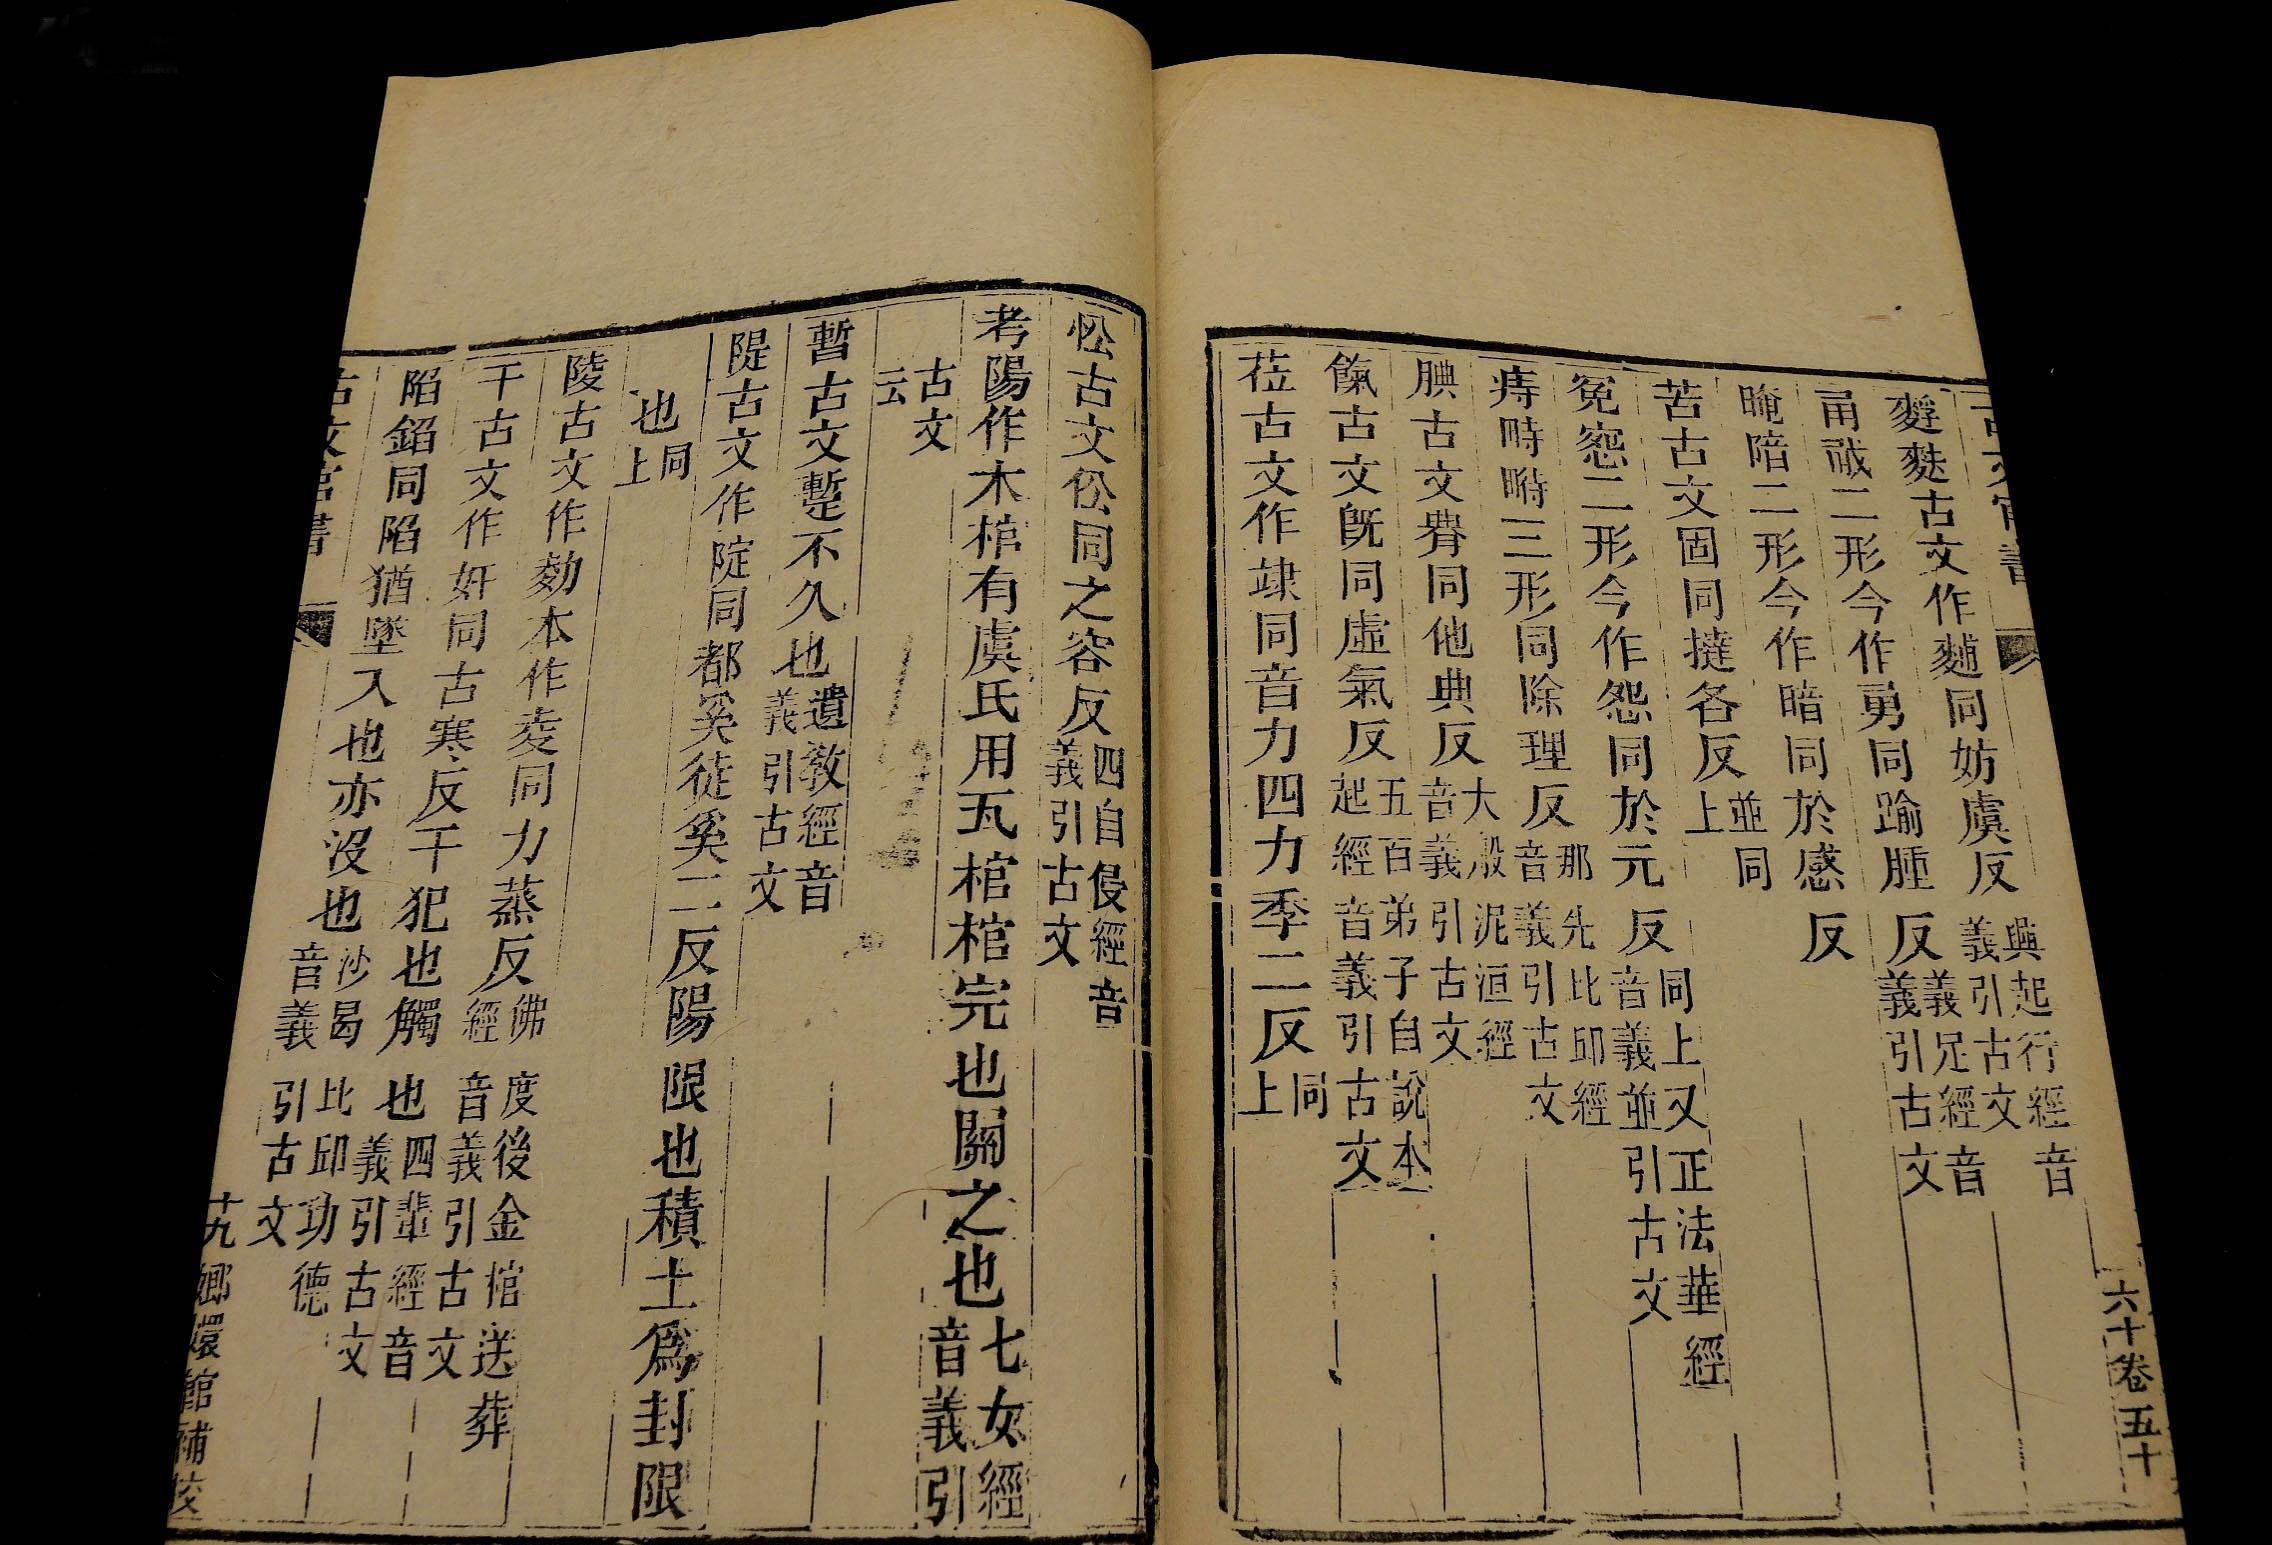 古文官書
六十卷五十
麰麩古文作𪌭同妨虞反興起行經音義引古文
甬㦷二形今作勇同踰腫反義足經音義引古文
晻陪二形今作暗同於感反
苦古文固同撻各反並同上
冤惌二形今作怨同於元反同上又正法華經音義並引古文
痔時㗑三形同除理反那先比邱經音義引古文
腆古文㬰同他典反大般泥洹經音義引古文
餼古文旣同虛氣反五百弟子自說本起經音義引古文
莅古文作竦同音力四力季二反同上
忪古文伀同之容反四自侵經音義引古文
考陽作木棺有虞氏用瓦棺棺完也關之也七女經音義引
古文云
暫古文蹔不久也遺敎經音義引古文
隄古文作䧑同都奚徒奚二反陽限也積土爲封限
也同上
陵古文作勑本作夌同力蒸反佛度後金棺送葬經音義引古文
干古文作奸同古寒反干犯也觸也四輩經音義引古文
陷錎同陷猶墜入也亦沒也沙曷比邱功德音義引古文
古文官書
十九
嫏嬛館補校